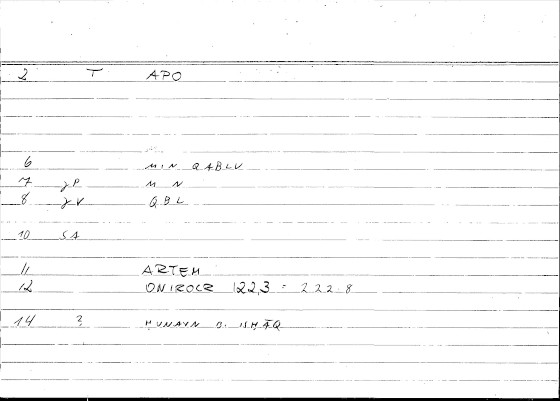 2 T APO
6 MIN QABLU
7 γP M N
8 γV QBL
10 SA
11 ARTEM
12 ONIROCR 122,3 = 222.8
14 ? HUNAYN B. ISHĀQ